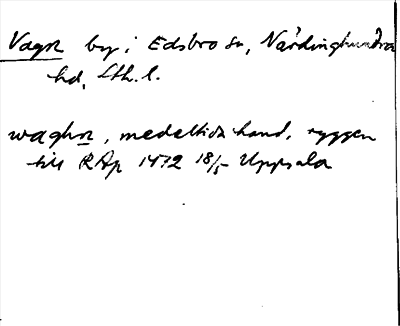 Vagn by i Edsbro sn, Närdinghundra
hd, Sth. l.
waghn, medeltida hand, ryggen
till RAp 1472 18/5 Uppsala